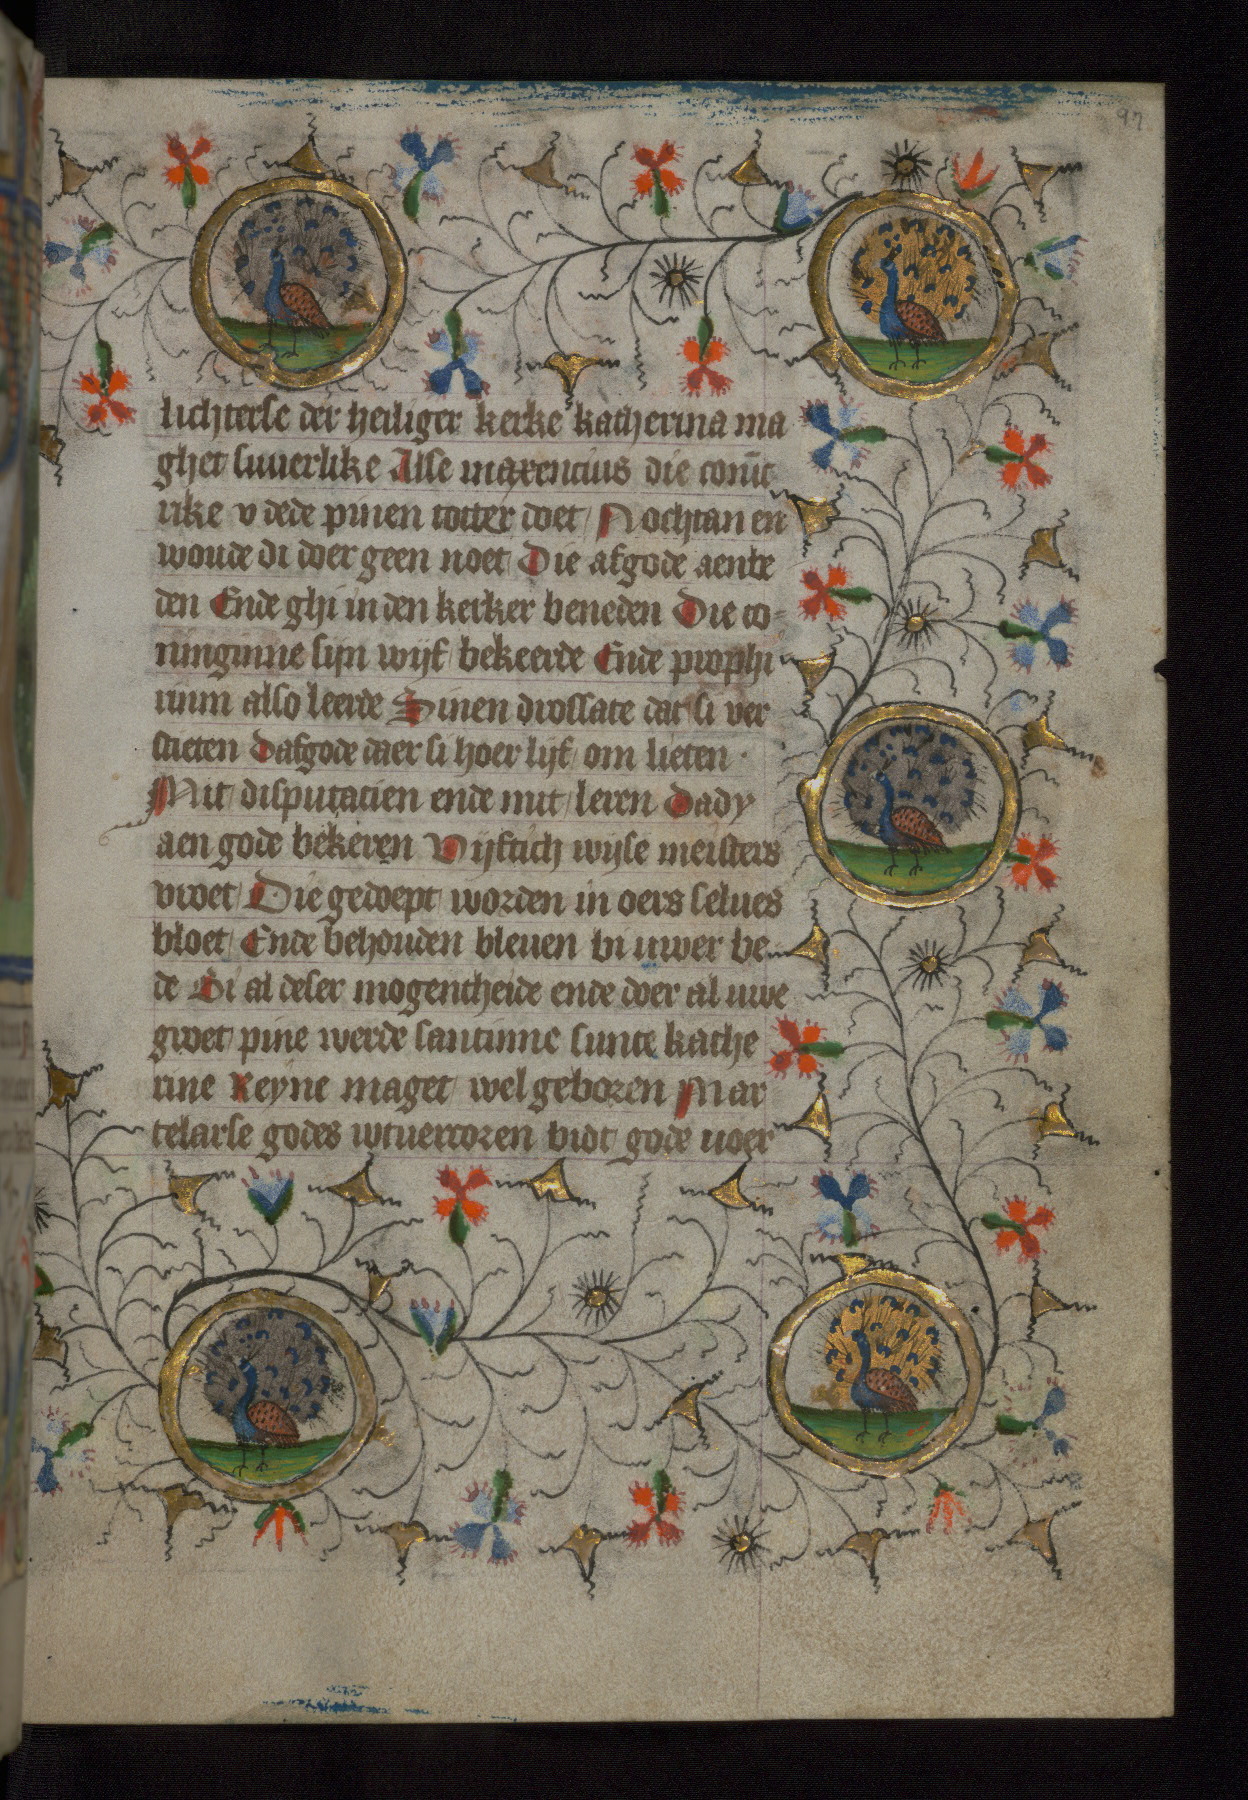 97
lichterse der heiliger kerke katherina ma
ghet suuerlike Alse maxencius die
rike v dede pinen totter doet Nochtan en
woude di doer geen noet Die afgode aenbe
den Ende ghi in den kerker beneden Die co-
ninginne sijn wijf bekeerde Ende prophi
rium also leerde Sinen drossate dat si ver
stieten Dafgode daer si hoer lijf om lieten ·
Mit disputacien ende mit leren Dady
aen gode bekeren Vijftich wijse meisters
vroet Die gedoept worden in oers selues
bloet Ende behouden bleuen bi uwer be
de Bi al deser mogentheide ende doer al uwe
groet pine werde santinne sunte kathe
rine Reyne maget wel geboren Mar
telarse godes wtuercoren bidt gode uoer